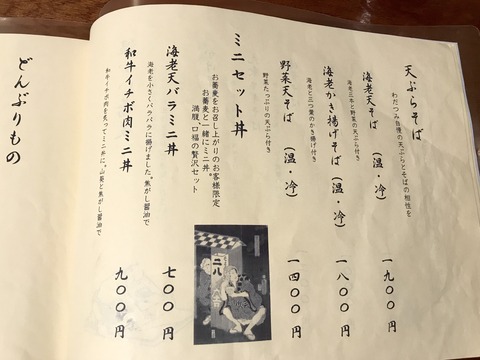 天ぷらそば
わだつみ自慢の天ぷらとそばの相性を
海老天そば (温・冷) 一九〇〇円
海老三本と野菜の天ぷら付き
海老かき揚げそば (温・冷) 一八〇〇円
海老と三つ葉のかき揚げ付き
野菜天そば (温・冷) 一四〇〇円
野菜たっぷりの天ぷら付き
ミニセット丼
お蕎麦をお召し上がりのお客様限定
お蕎麦と一緒にミニ丼。
満腹、口福の贅沢セット
二八
海老天バラミニ丼 七〇〇円
海老を小さくバラバラに揚げました。焦がし醤油で
和牛イチボ肉ミニ丼 九〇〇円
和牛イチボ肉を炙ってミニ丼に。山葵と焦がし醤油で
どんぶりもの